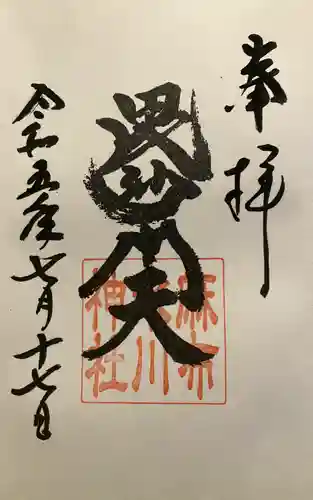 奉拝
毘沙門天
麻布
氷川
神社
令和五年七月十七日